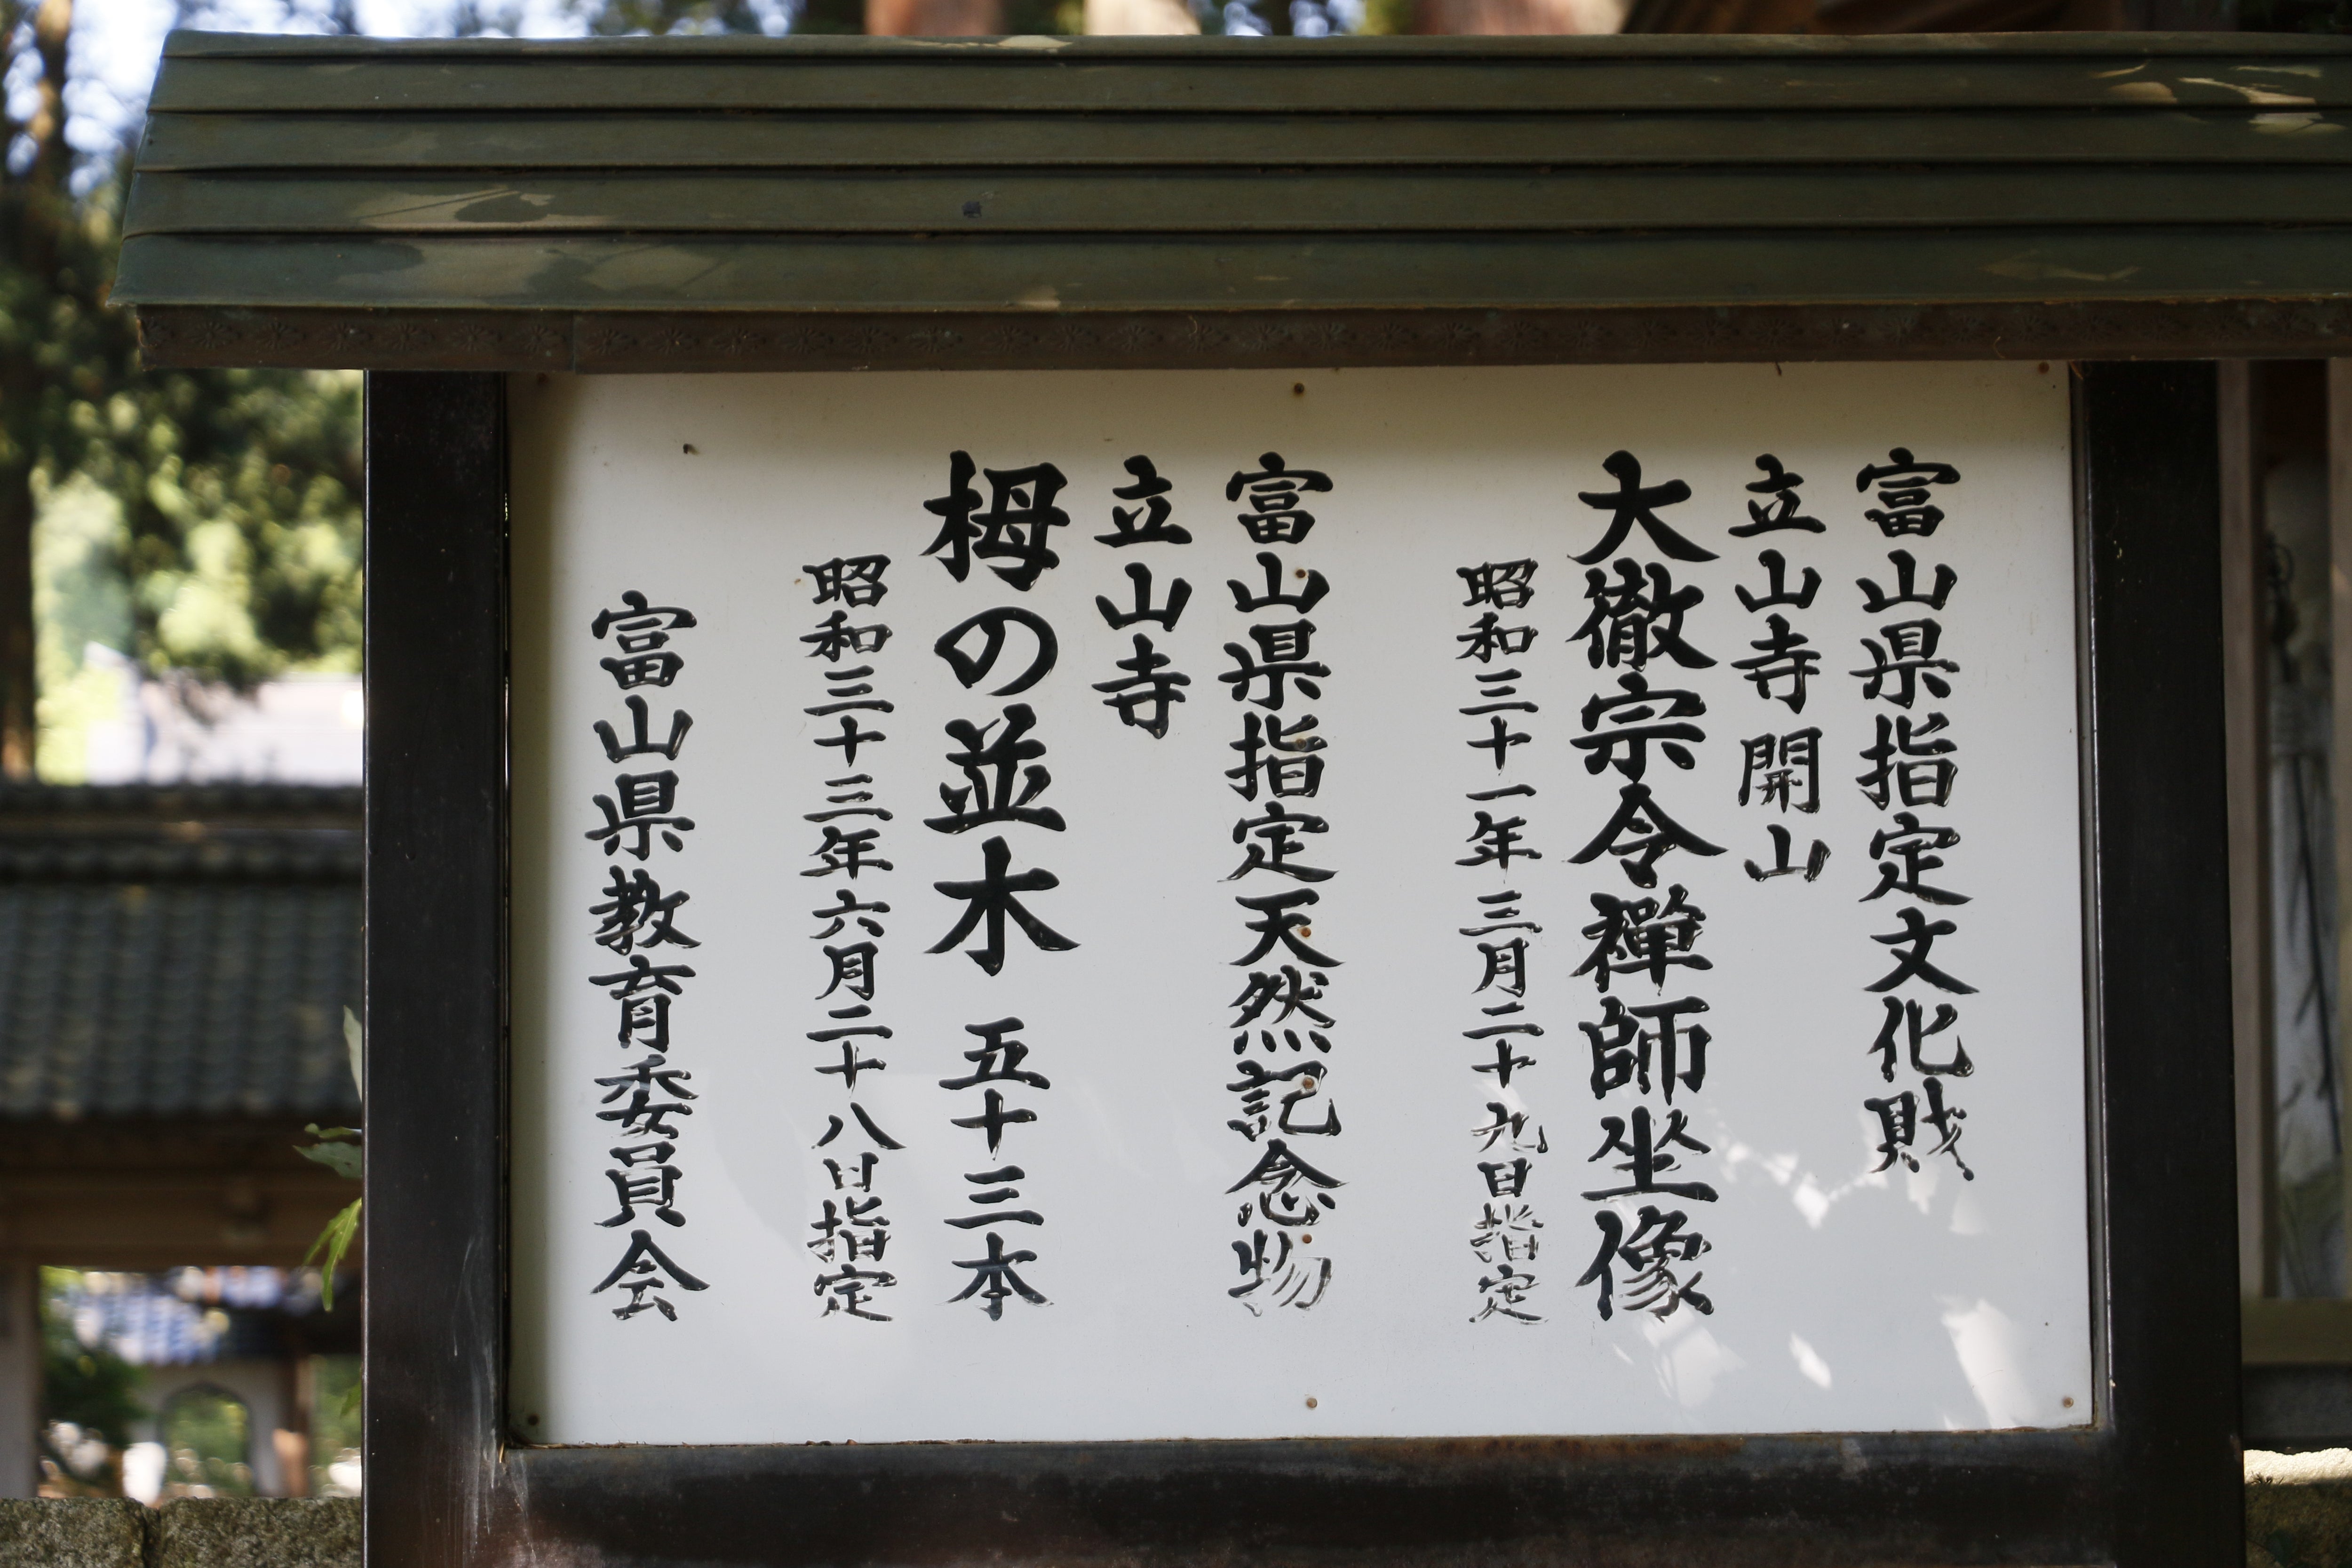 富山県指定文化財
立山寺開山
大徹宗令禅師坐像
昭和三十一年三月二十九日指定
富山県指定天然記念物
立山寺
栂の並木 五十三本
昭和三十三年六月二十八日指定
富山県教育委員会